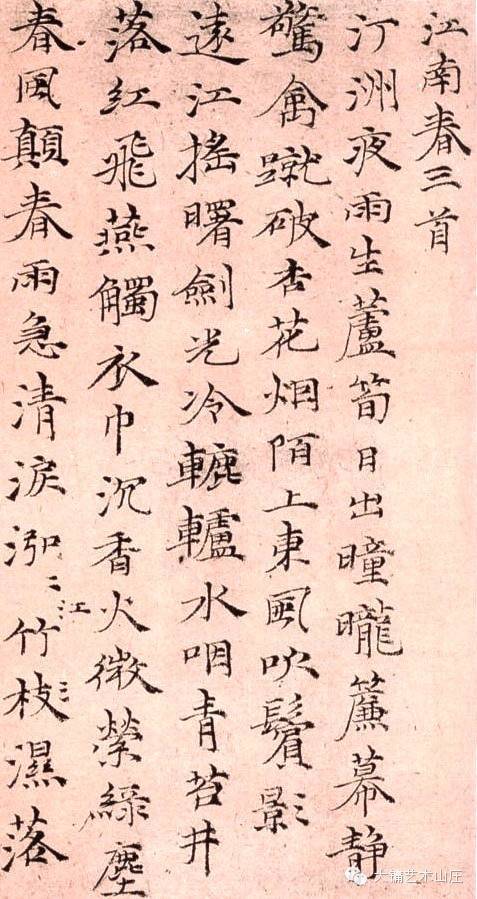 江南春三首
汀洲夜雨生蘆筍日出曈曨簾幕静
驚禽蹴破杏花烟陌上東風吹鬢影
遠江摇曙劍光冷轆轤水咽青苔井
落紅飛燕觸衣巾沉香火微縈緑塵
春風顛春雨急清淚泓〻江竹枝濕落
大镛艺术山庄